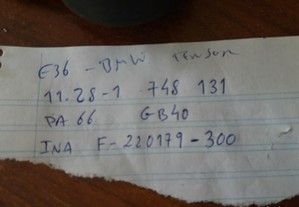 E36 - BMW
11.28-1 748 131
PA 66 GB40
INA F-220179-300